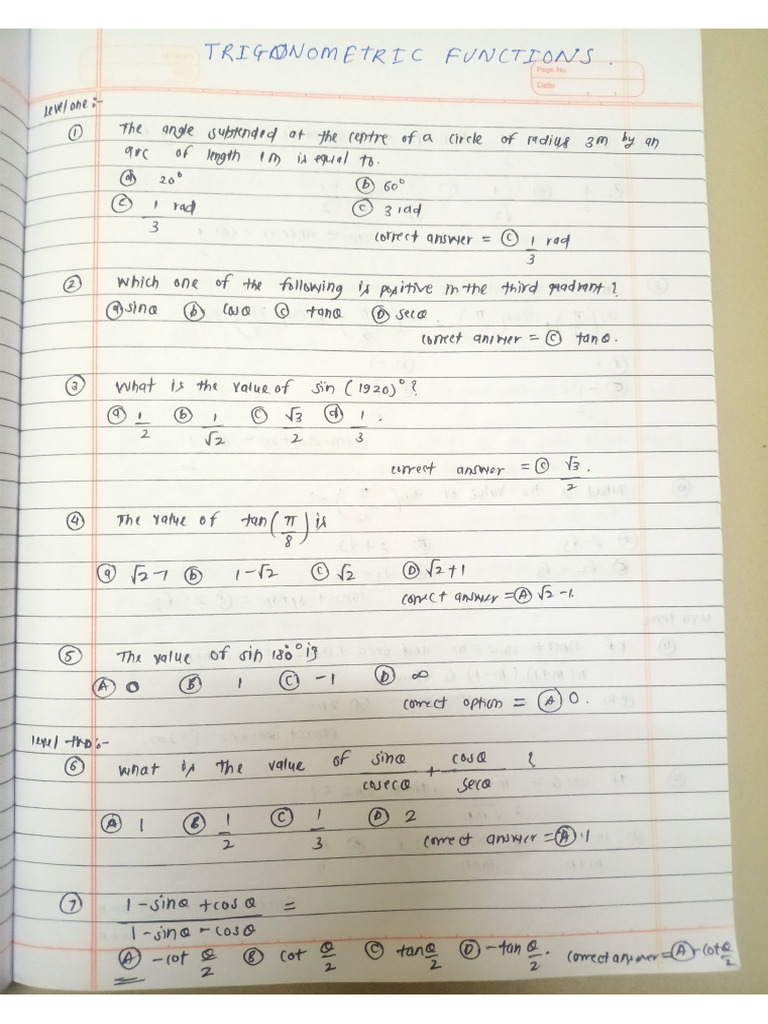 TRIGONOMETRIC FUNCTIONS.
Page No.
Date
Level one :-
① The angle subtended at the centre of a circle of radius 3m by an
arc of length 1m is equal to.
ⓐ 20° ⓑ 60°
ⓒ 1/3 rad ⓒ 3 rad
correct answer = ⓒ 1/3 rad
② Which one of the following is positive in the third quadrant?
ⓐ sinθ ⓑ cosθ ⓒ tanθ Ⓓ secθ
correct answer = ⓒ tanθ.
③ What is the value of sin (1920)°?
ⓐ 1/2 ⓑ 1/√2 ⓒ √3/2 ⓓ 1/3.
correct answer = ⓒ √3/2.
④ The value of tan(π/8) is
ⓐ √2-1 ⓑ 1-√2 ⓒ √2 Ⓓ √2+1
correct answer = Ⓐ √2-1.
⑤ The value of sin 180° is
Ⓐ 0 Ⓑ 1 Ⓒ -1 Ⓓ ∞
correct option = Ⓐ 0.
level two :-
⑥ What is the value of sinθ/cosecθ + cosθ/secθ ?
Ⓐ 1 Ⓑ 1/2 Ⓒ 1/3 Ⓓ 2
correct answer = Ⓐ 1
⑦ 1-sinθ+cosθ/1-sinθ-cosθ =
Ⓐ -cot θ/2 Ⓑ cot θ/2 Ⓒ tan θ/2 Ⓓ -tan θ/2. correct answer = Ⓐ -cot θ/2